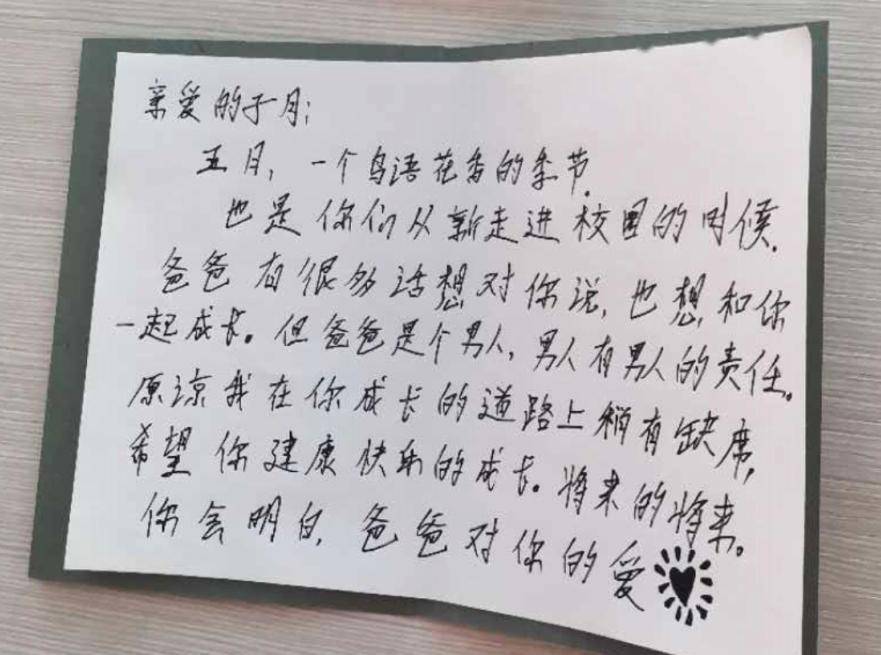 亲爱的子月:
五月,一个鸟语花香的季节.
也是你们从新走进校园的时候.
爸爸有很多话想对你说,也想和你
一起成长。但爸爸是个男人,男人有男人的责任。
原谅我在你成长的道路上稍有缺席,
希望你建康快乐的成长。将来的将来。
你会明白,爸爸对你的爱